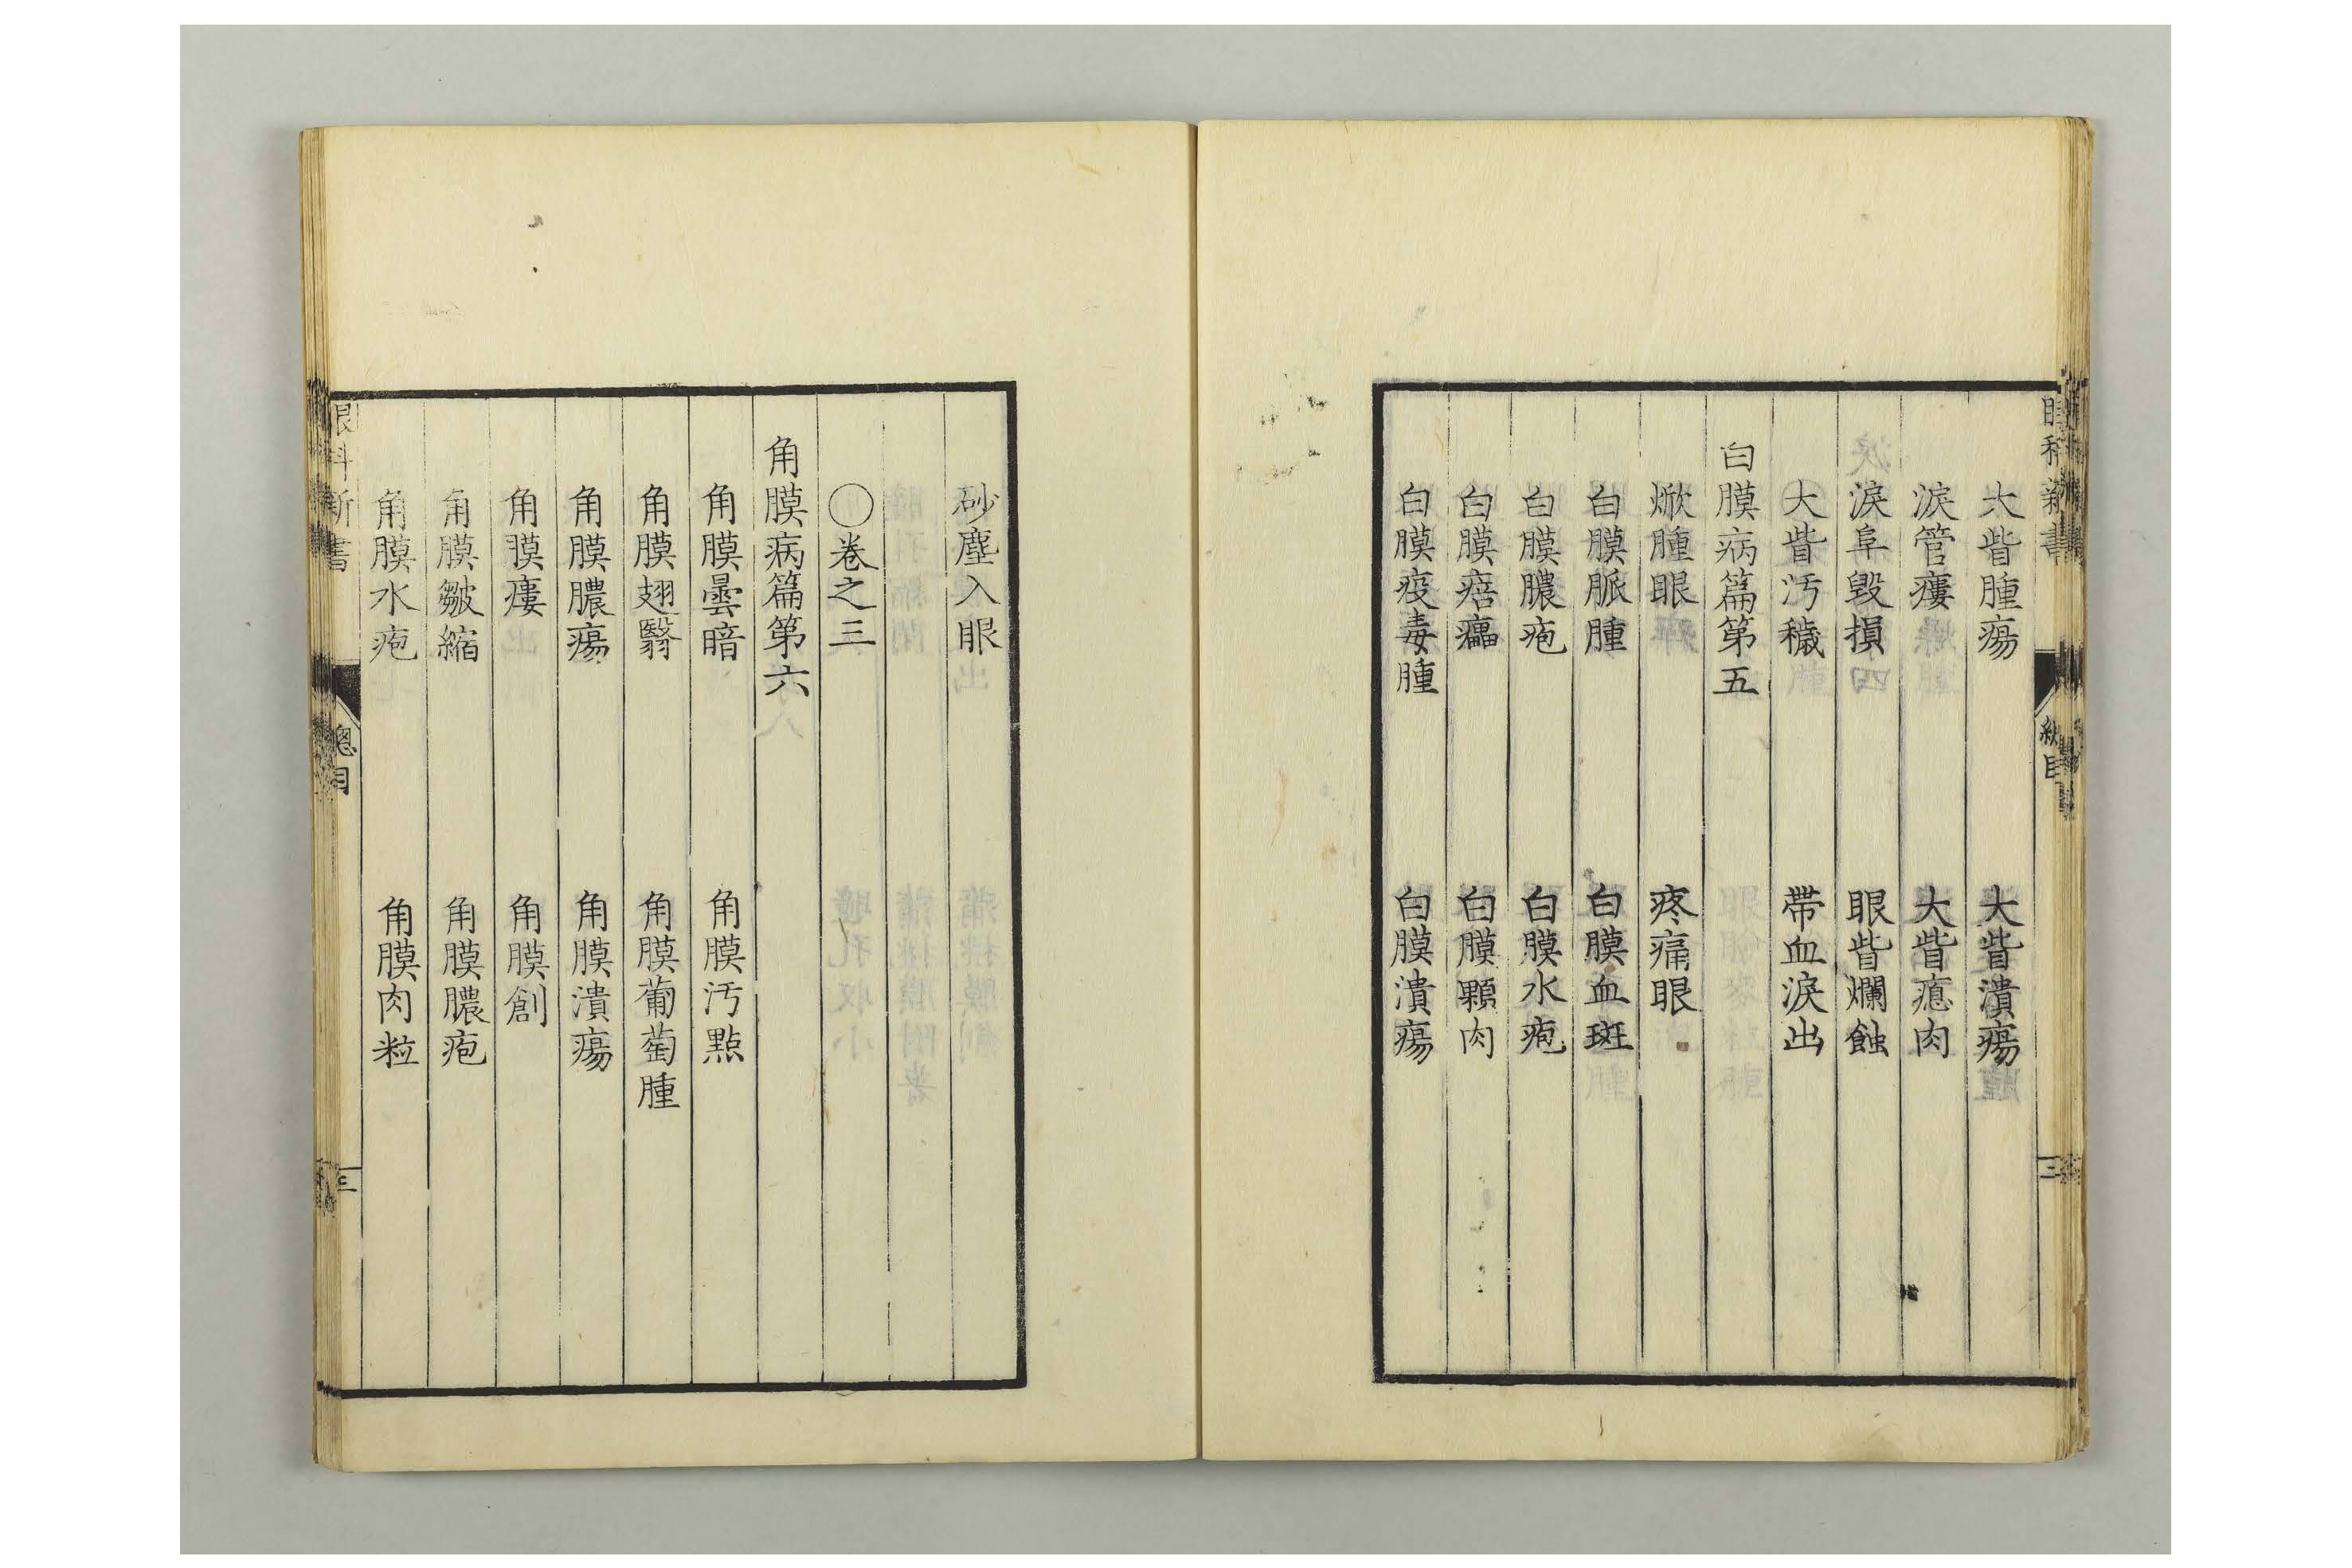 大眥腫瘍　大眥潰瘍
淚管瘻　大眥瘜肉
淚阜毀損　眼眥爛蝕
大眥汚穢　帶血淚出
白膜病篇第五
焮腫眼　疼痛眼
白膜脈腫　白膜血斑
白膜膿疱　白膜水疱
白膜痞癟　白膜顆肉
白膜疫毒腫　白膜潰瘍
砂塵入眼
〇卷之三
角膜病篇第六
角膜曇暗　角膜汚點
角膜翅翳　角膜葡萄腫
角膜膿瘍　角膜潰瘍
角膜瘻　角膜創
角膜皺縮　角膜膿疱
角膜水疱　角膜肉粒
眼科新書　總目　三